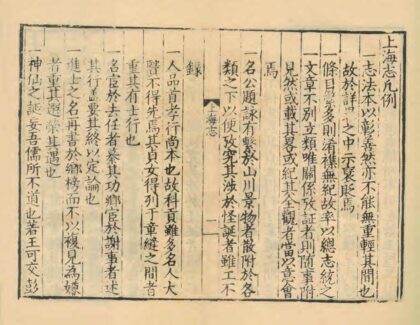 上海志凡例
一志法本以彰善然亦不能無重輕其間也
故於詳畧之中示褒貶焉
一條目繁多則淆襍無紀故率以總志統之
一文章不別立類唯關係攷証者則随事附
見然或載其畧或紀其全觀者當以意會
焉
上海志
一
一名公題詠有繫於山川景物者散附於各
類之下以便攷究其涉於怪誕者雖工不
録
一人品首孝行尚本也故科貢雖多名人大
不得先焉其貞女得列于童縫之間者
重其有士行也
一名宦於去任者其功鄉宦於謝事者述
其行蓋要其終以定論也
一進士之名再書於鄉榜而不以複見為嫌
者重其選榮其遇也
一神仙之誕妄吾儒所不道也若王可交彭